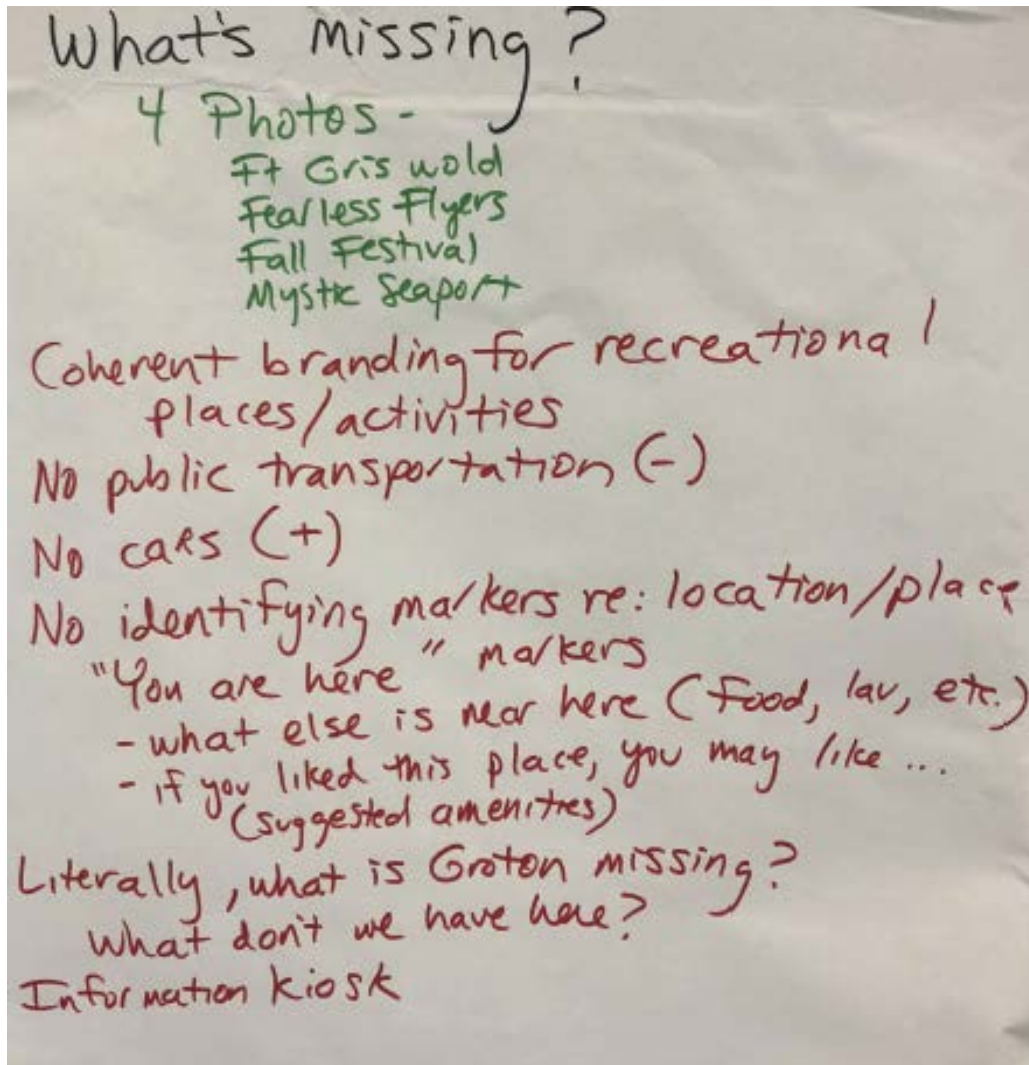 What's missing?
4 Photos -
Ft Griswold
Fearless Flyers
Fall Festival
Mystic Seaport
Coherent branding for recreational
places/activities
No public transportation (-)
No cars (+)
No identifying markers re: location/place
"You are here" markers
- what else is near here (food, lav, etc.)
- if you liked this place, you may like ...
(suggested amenities)
Literally, what is Groton missing?
What don't we have here?
Information kiosk